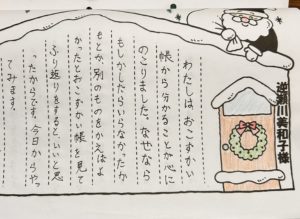 逆瀬川美和子様
わたしは、おこずかい
帳から分かることが心に
のこりました。なぜなら
もしかしたらいらなかったか
もとか別のものをかえばよ
かったとおこずかい帳を見て
ふり返りをすると、いいと思
ったからです。今日からやっ
てみます。